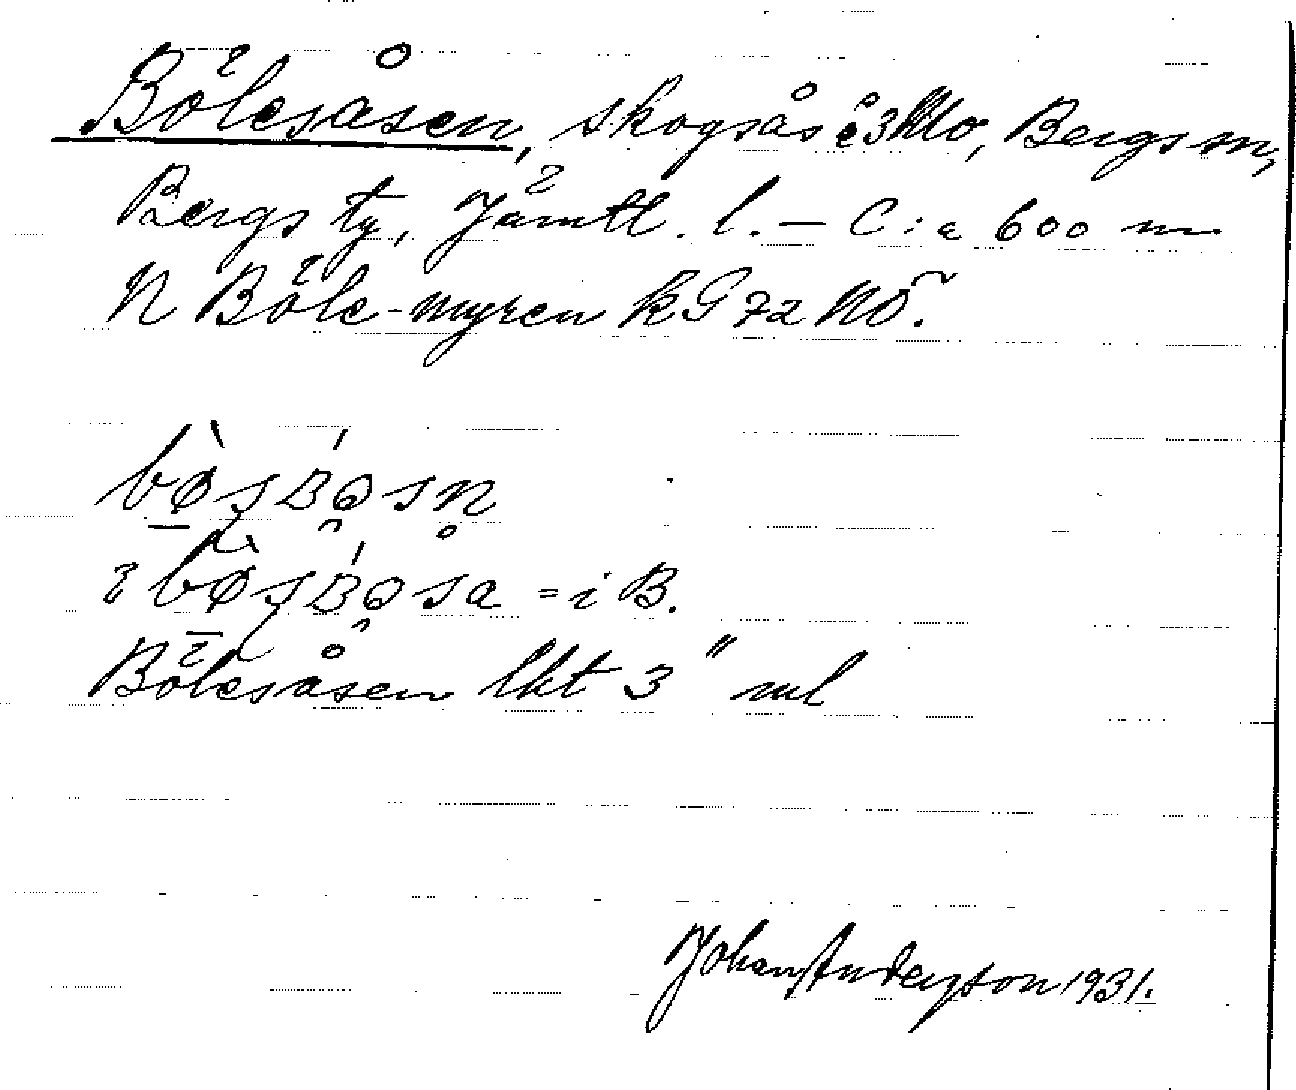 Bölesåsen, skogsås å 3 Mo, Bergs sn,
Bergs tg, Jämtl. l. – C:a 600 m
N Böle-myren kG 72 NO.
= i B.
Bölesåsen lkt 3" ml
Johan Anderson 1931.